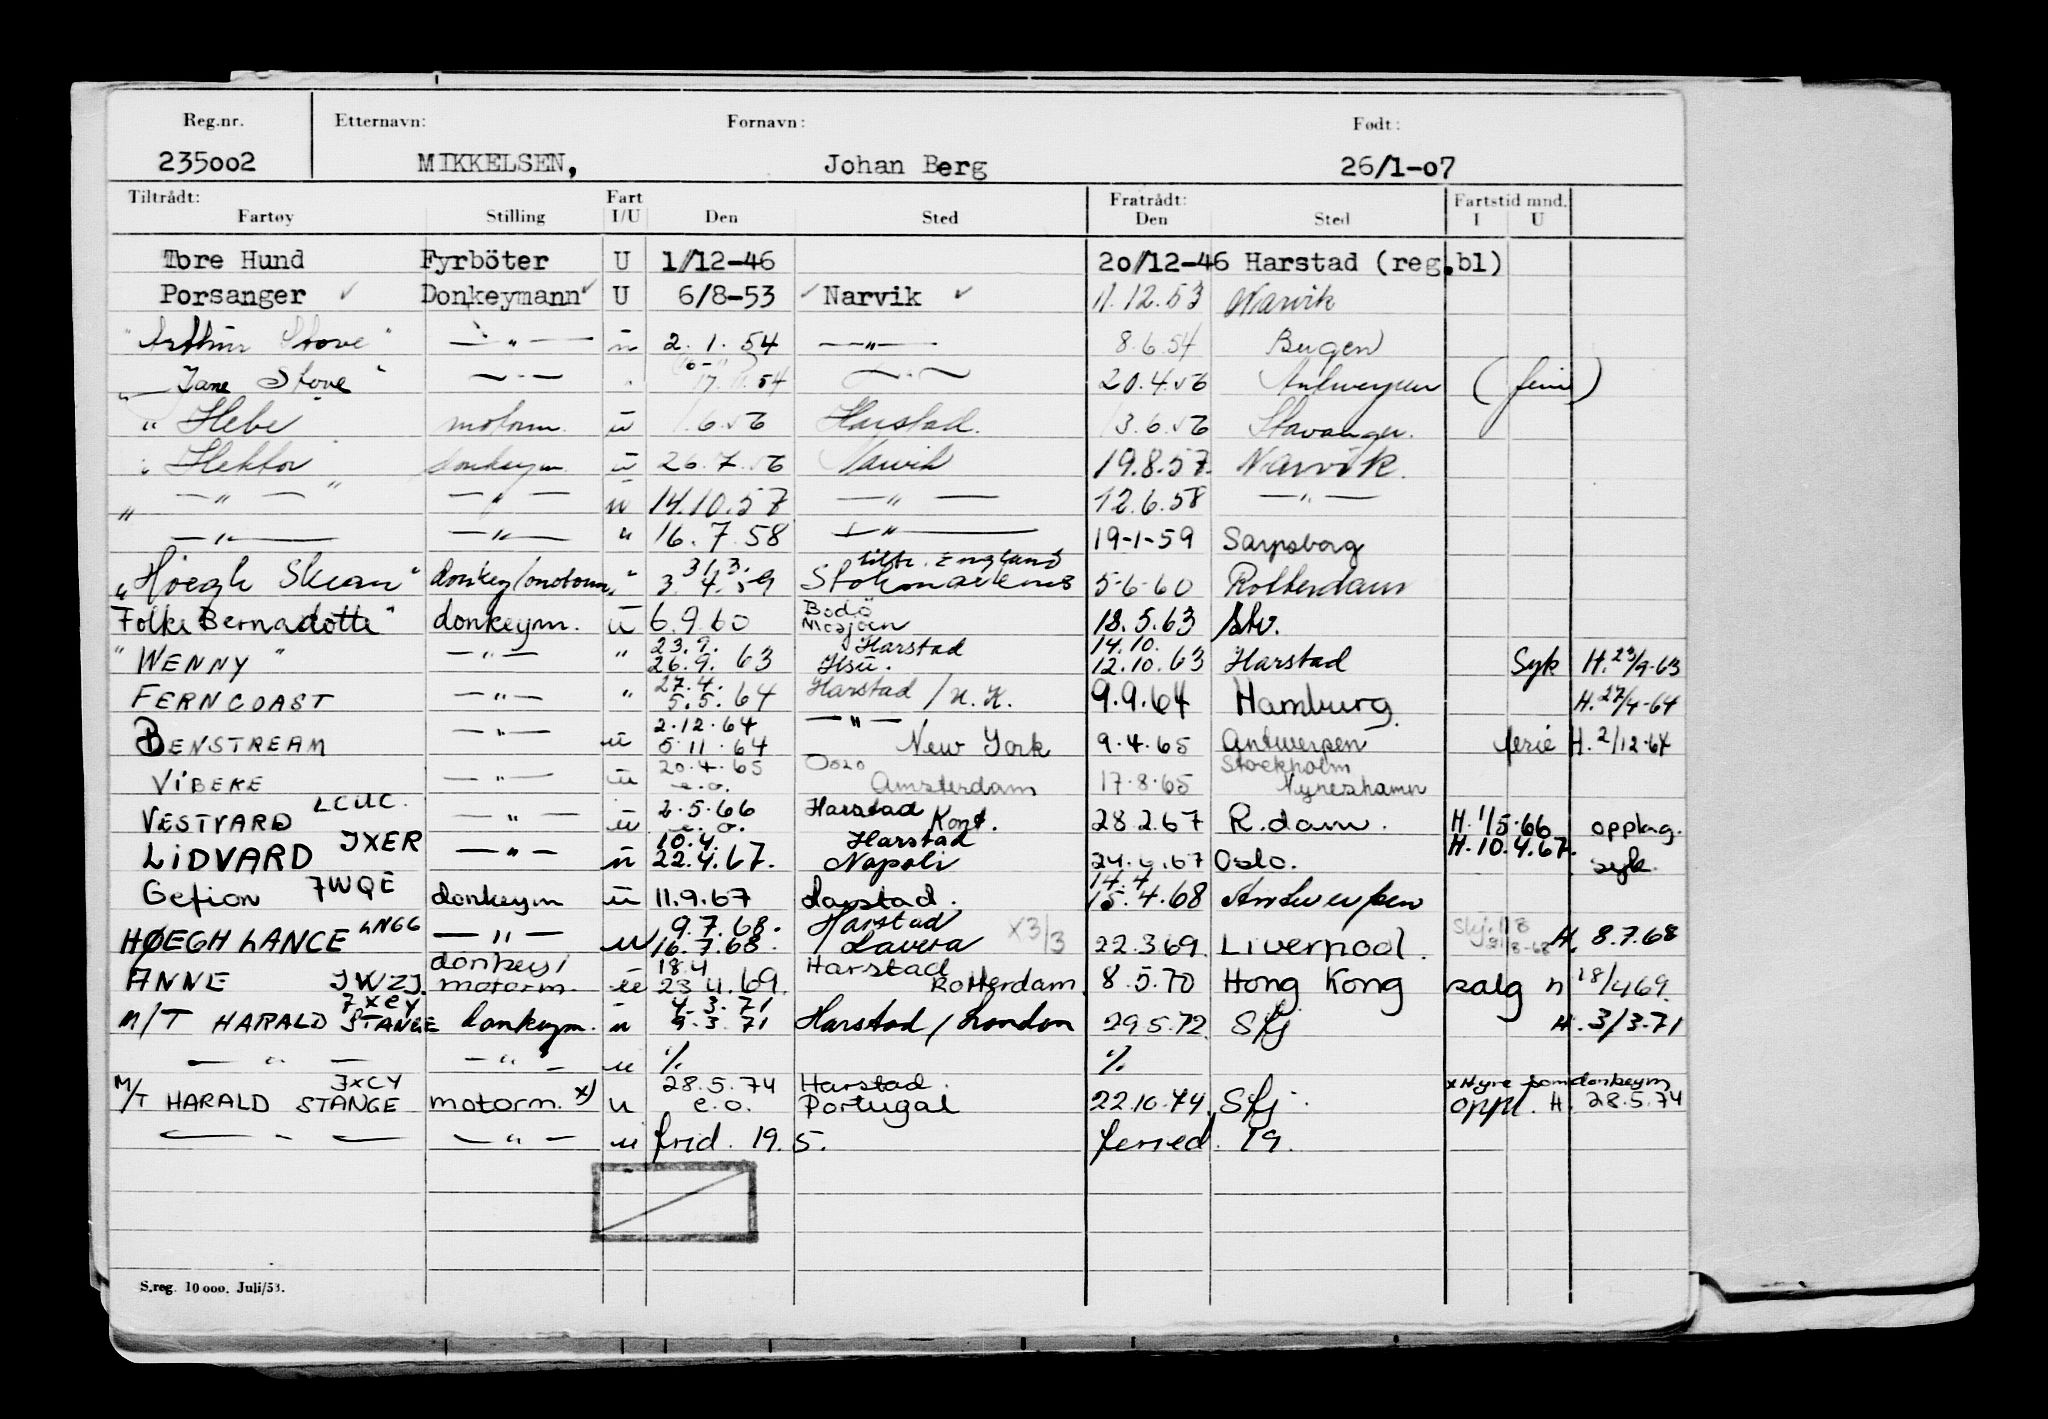 Reg.nr. Etternavn: Fornavn: Født:
235002 MIKKELSEN, Johan Berg 26/1-07
Tiltrådt: Fart Fratrådt: Fartstid mnd.
Fartøy Stilling I/U Den Sted Den Sted I U
Tore Hund Fyrböter U 1/12-46 20/12-46 Harstad (reg.bl)
Porsanger ✓ Donkeymann ✓ U 6/8-53 ✓ Narvik ✓ 11.12.53 Narvik
"Arthur Stove" — " — u 2.1.54 — " — 8.6.54 Bergen
"Jane Stove" — " — " 17.11.54 — " — 20.4.56 Antwerpen (ferie)
"Hebe" motorm. u 1.6.56 Harstad. 13.6.56 Stavanger.
"Hektor" donkeym. u 26.7.56 Narvik 19.8.57. Narvik.
" — " — — " — u 14.10.57 — " — 12.6.58 — " —
— " — — " — " 16.7.58 — " — 19-1-59 Sarpsborg
31.3. tiltr. England
"Høegh Skean" donkey/motorm. " 3.4.59 Stokmarknes 5-6-60 Rotterdam
Bodö
Folke Bernadotte" donkeym. u 6.9.60 Mosjøen 18.5.63 Stv.
23.9. Harstad 14.10.
"WENNY" — " — " 26.9.63 Hsu. 12.10.63 Harstad Syk H.23/9-63
27.4.
FERNCOAST — " — " 5.5.64 Harstad / U.K. 9.9.64 Hamburg. H.27/4-64
2.12.64 — " —
BENSTREAM — " — u 5.11.64 New York 9.4.65 Antwerpen ferie H.2/12-64
20.4.65 Oslo Stockholm
VIBEKE — " — u e.o. Amsterdam 17.8.65 Nyneshamn
LCUC. 2.5.66 Harstad
VESTVARD — " — u e.o. Kont. 28.2.67 R.dam. H.1/5.66 opplag.
JXER 10.4. Harstad H.10.4.67.
LIDVARD — " — u 22.4.67. Napoli 24.4.67 Oslo. syk.
JWQE 14.4
Gefion donkeym u 11.9.67 Harstad. 15.4.68 Antwerpen
LNGG 9.7.68. Harstad
HØEGH LANCE — " — u 16.7.68. Lavera X3/3 22.3.69. Liverpool. H. 8.7.68
donkey/ 18.4 Harstad
ANNE JWZJ. motorm. u 23.4.69. Rotterdam. 8.5.70 Hong Kong salg H 18/4 69.
JXCY 4.3.71
M/T HARALD STANGE donkeym. u 9.3.71 Harstad / London 29.5.72 Sfj H. 3/3.71
— " — — " — u % %
JXCY 28.5.74 Harstad. x Hyre som donkeym
M/T HARALD STANGE motorm. x) u e.o. Portugal 22.10.74. Sfj. oppl. H. 28.5.74
— " — — " — u frid. 19.5. feried. 19.
S.reg. 10 000. Juli/53.